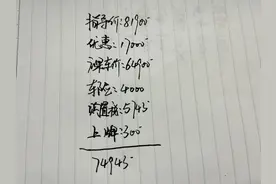 指导价:81900
优惠:17000
裸车价:64900
车险:4000
购置税:5745
上牌:300
74945